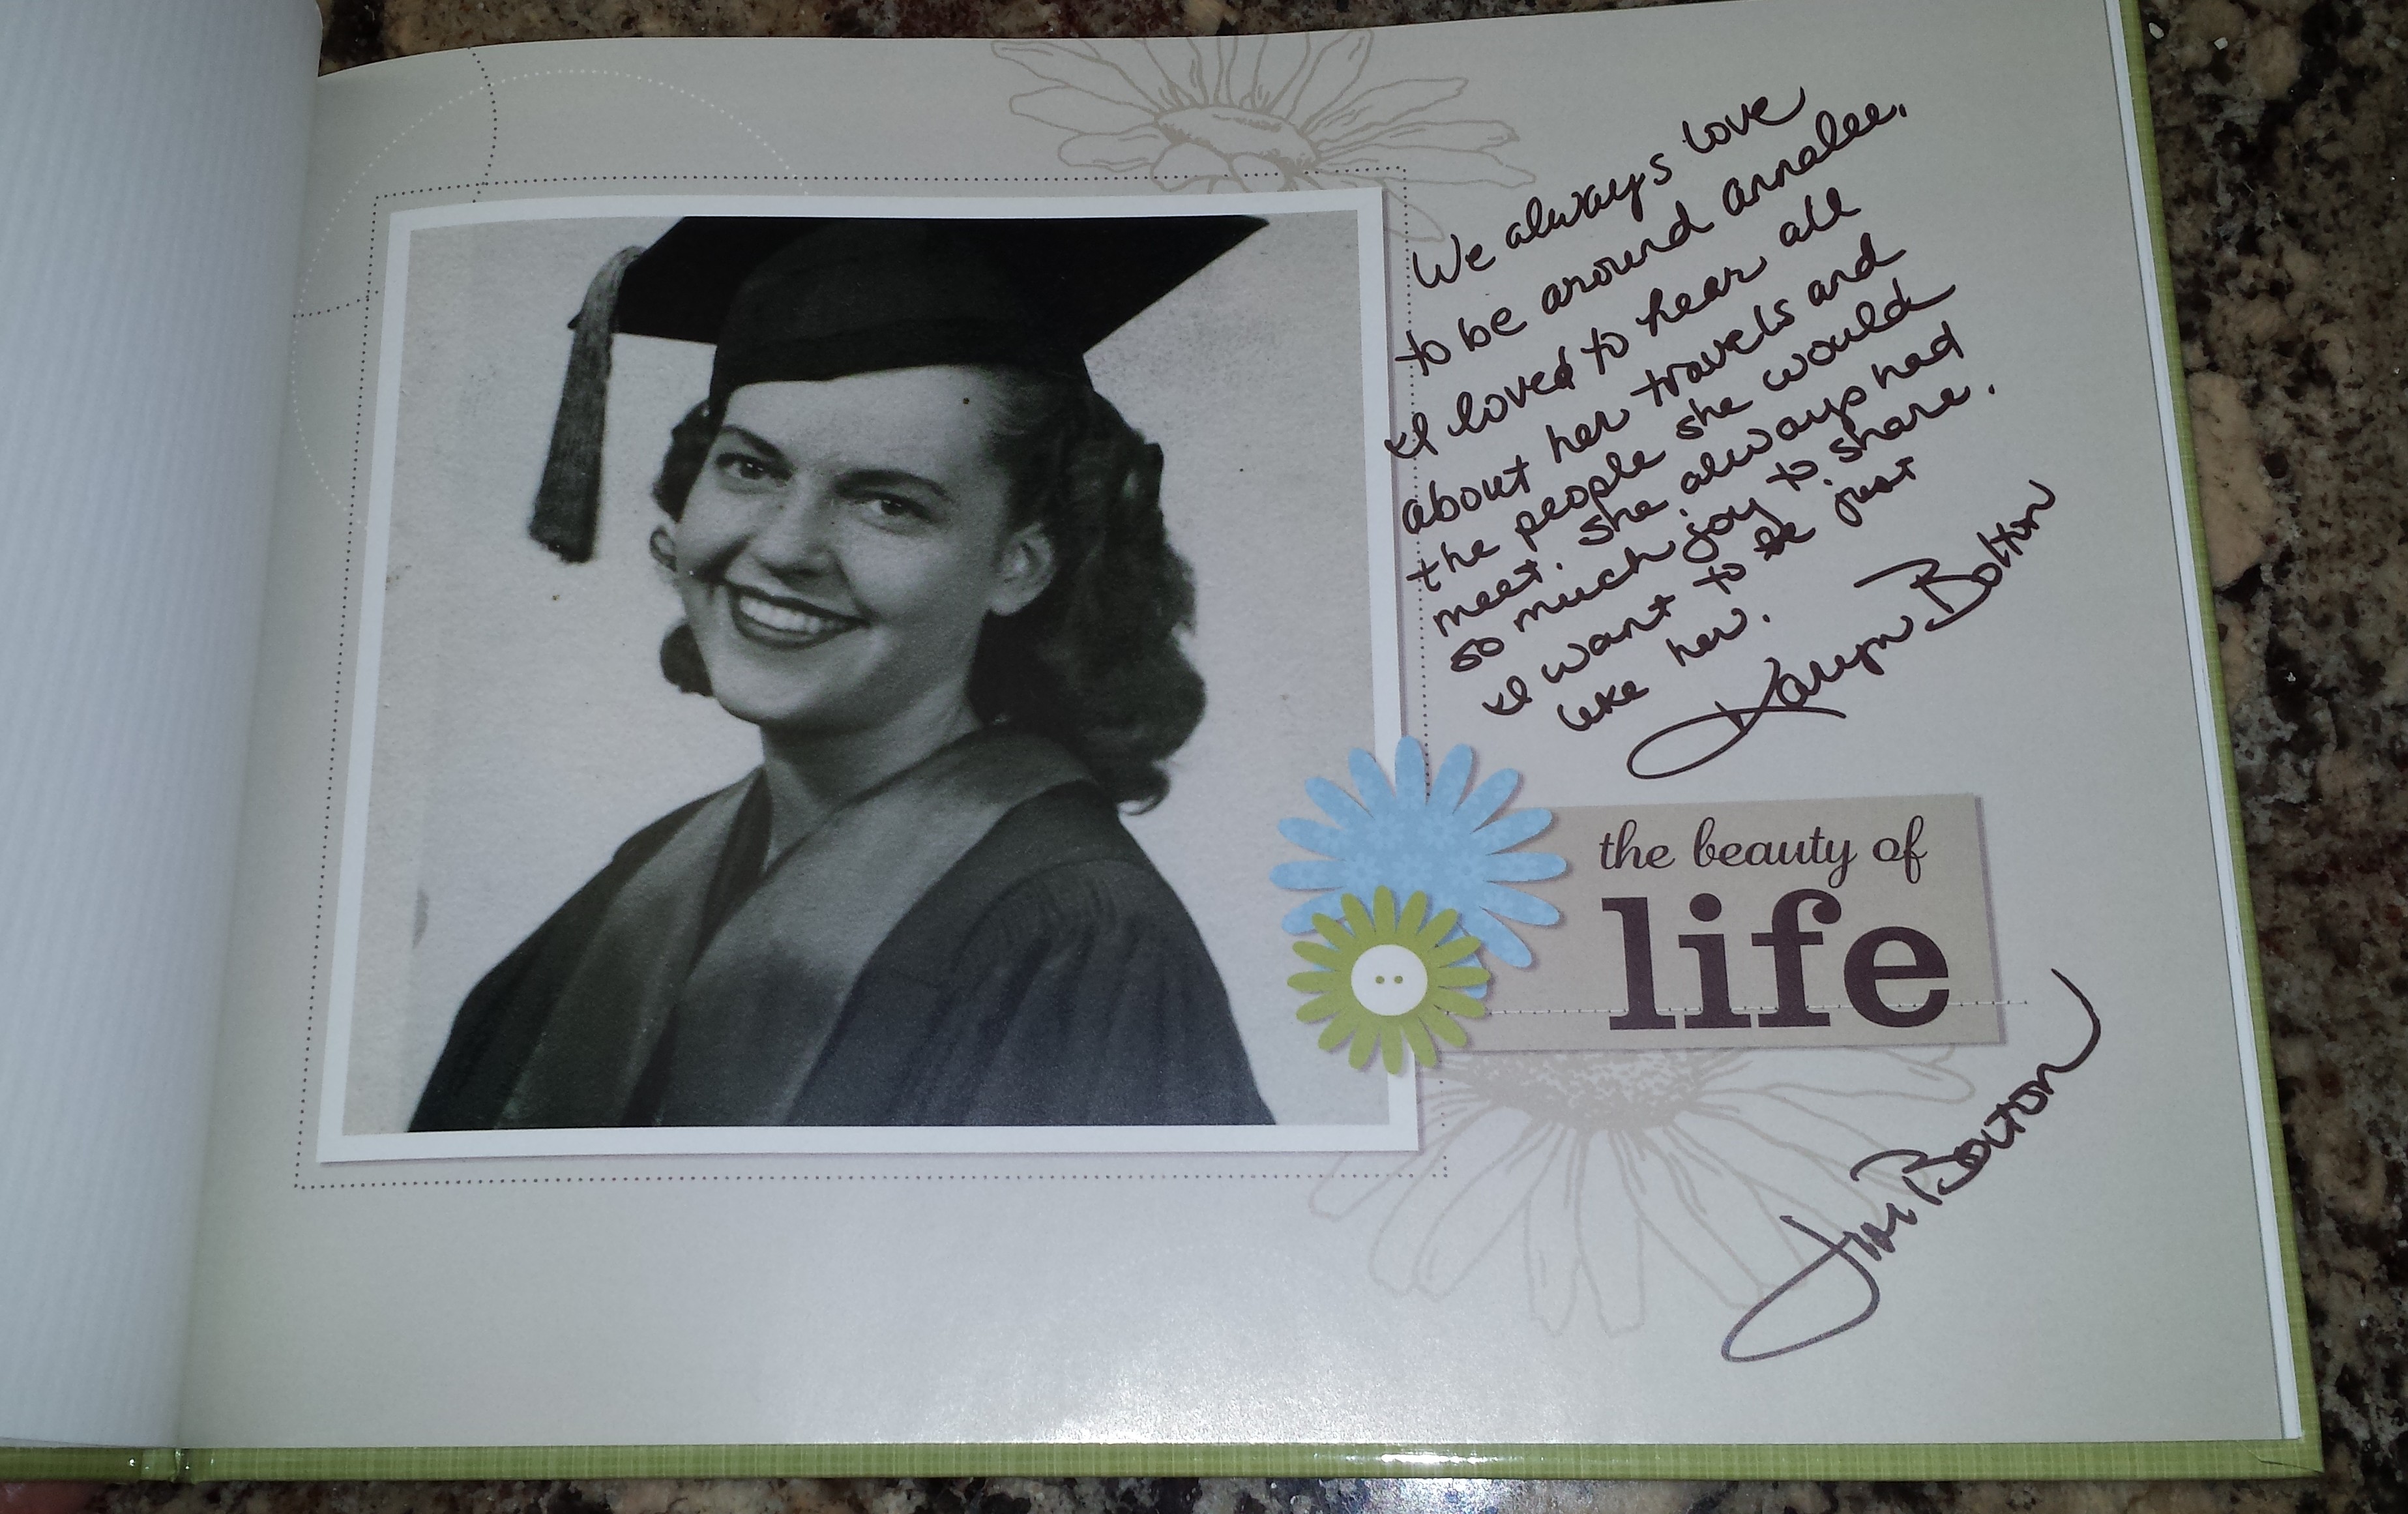 We always love
to be around Annalee.
I loved to hear all
about her travels and
the people she would
meet. She always had
so much joy to share.
I want to be just
like her.
Karyn Bolton
the beauty of
life
Jim Bolton